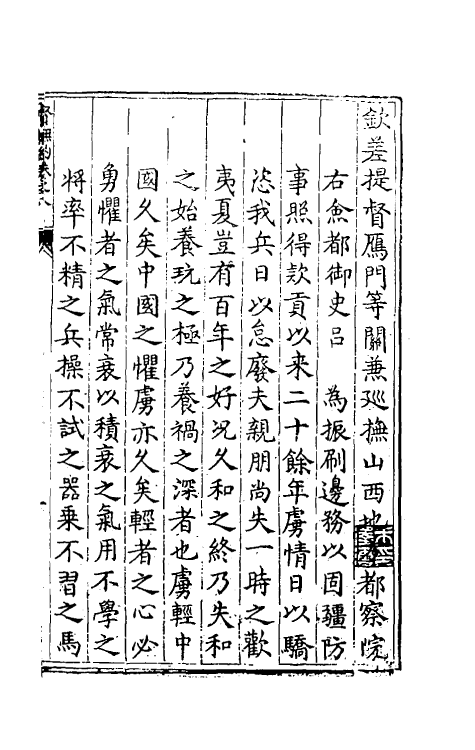 欽差提督鴈門等關兼巡撫山西地都察院
右僉都御史呂　為振刷邊務以固疆防
事照得欵貢以來二十餘年虜情日以驕
恣我兵日以怠廢夫親朋尚失一時之歡
夷夏豈有百年之好況久和之終乃失和
之始養玩之極乃養禍之深者也虜輕中
國久矣中國之懼虜亦久矣輕者之心必
勇懼者之氣常衰以積衰之氣用不學之
將率不精之兵操不試之器乗不習之馬